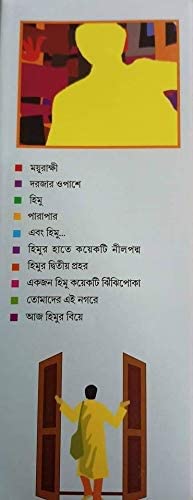 ময়ূরাক্ষী
দরজার ওপাশে
হিমু
পারাপার
এবং হিমু...
হিমুর হাতে কয়েকটি নীলপদ্ম
হিমুর দ্বিতীয় প্রহর
একজন হিমু কয়েকটি ঝিঁঝিঁপোকা
তোমাদের এই নগরে
আজ হিমুর বিয়ে